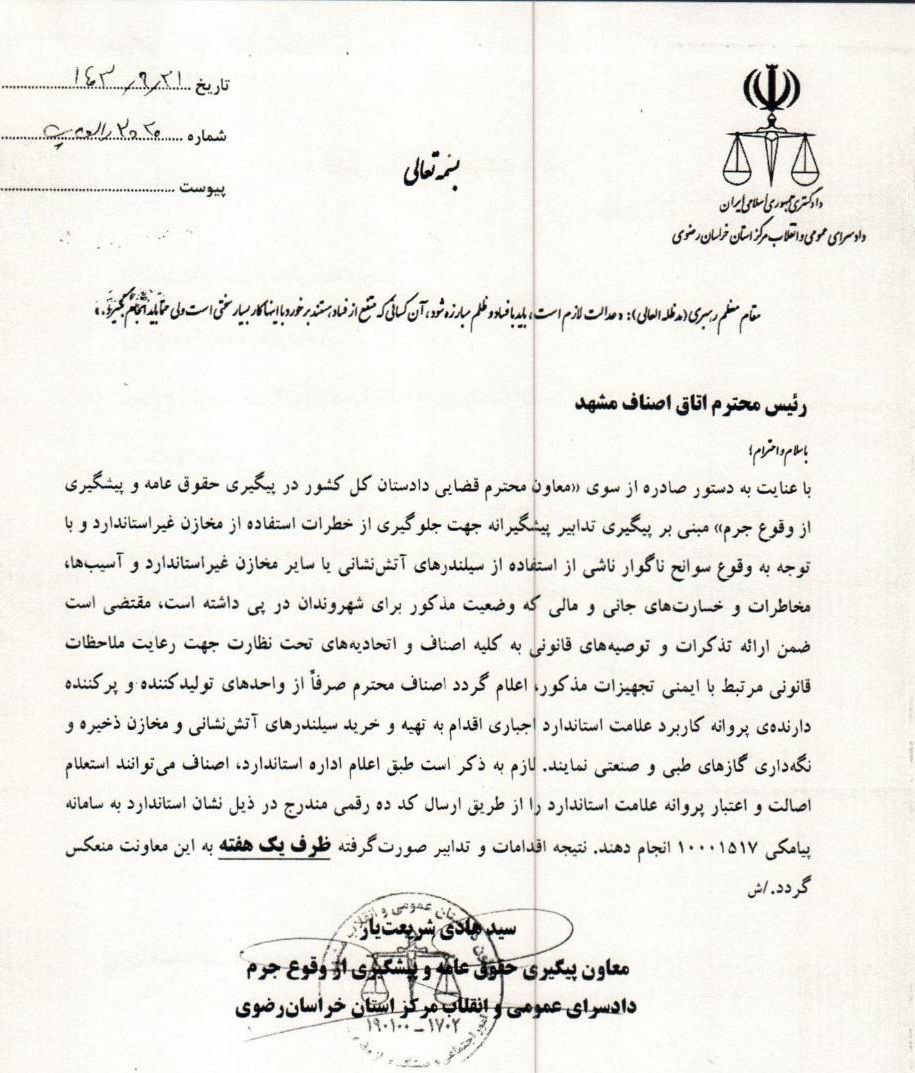 تاریخ ۱۴۰۳/۹/۲۱
شماره
پیوست
بسمه تعالی
دادگستری جمهوری اسلامی ایران
دادسرای عمومی و انقلاب مرکز استان خراسان رضوی
مقام معظم رهبری (مدظله العالی): «عدالت لازم است، باید با فساد و ظلم مبارزه شود، آن کسانی که منتفع از فساد هستند برخورد با اینها کار بسیار سختی است ولی حتماً باید انجام بگیرد.»
رئیس محترم اتاق اصناف مشهد
باسلام و احترام؛
با عنایت به دستور صادره از سوی «معاون محترم قضایی دادستان کل کشور در پیگیری حقوق عامه و پیشگیری
از وقوع جرم» مبنی بر پیگیری تدابیر پیشگیرانه جهت جلوگیری از خطرات استفاده از مخازن غیراستاندارد و با
توجه به وقوع سوانح ناگوار ناشی از استفاده از سیلندرهای آتش‌نشانی یا سایر مخازن غیراستاندارد و آسیب‌ها،
مخاطرات و خسارت‌های جانی و مالی که وضعیت مذکور برای شهروندان در پی داشته است، مقتضی است
ضمن ارائه تذکرات و توصیه‌های قانونی به کلیه اصناف و اتحادیه‌های تحت نظارت جهت رعایت ملاحظات
قانونی مرتبط با ایمنی تجهیزات مذکور، اعلام گردد اصناف محترم صرفاً از واحدهای تولیدکننده و پرکننده
دارنده‌ی پروانه کاربرد علامت استاندارد اجباری اقدام به تهیه و خرید سیلندرهای آتش‌نشانی و مخازن ذخیره و
نگه‌داری گازهای طبی و صنعتی نمایند. لازم به ذکر است طبق اعلام اداره استاندارد، اصناف می‌توانند استعلام
اصالت و اعتبار پروانه علامت استاندارد را از طریق ارسال کد ده رقمی مندرج در ذیل نشان استاندارد به سامانه
پیامکی ۱۰۰۰۱۵۱۷ انجام دهند. نتیجه اقدامات و تدابیر صورت‌گرفته ظرف یک هفته به این معاونت منعکس
گردد./ش
سید هادی شریعت‌یار
معاون پیگیری حقوق عامه و پیشگیری از وقوع جرم
دادسرای عمومی و انقلاب مرکز استان خراسان رضوی
۱۷۰۲ - ۱۹۰۱۰۰